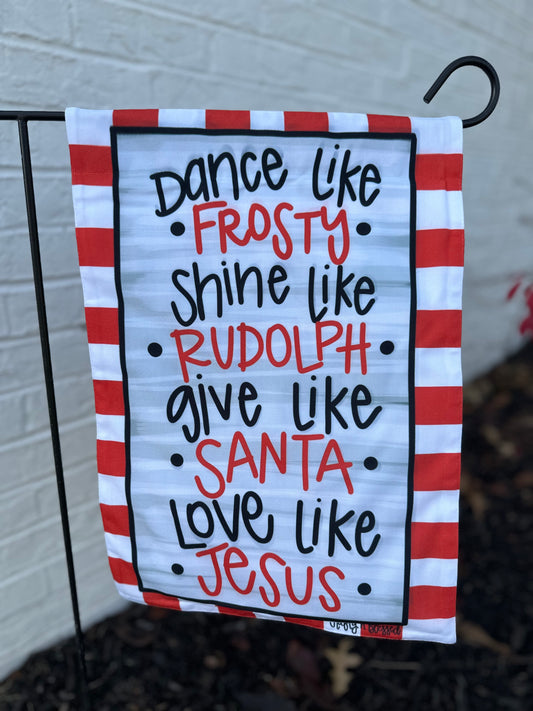 Dance like
FROSTY
shine like
RUDOLPH
give like
SANTA
Love like
Jesus